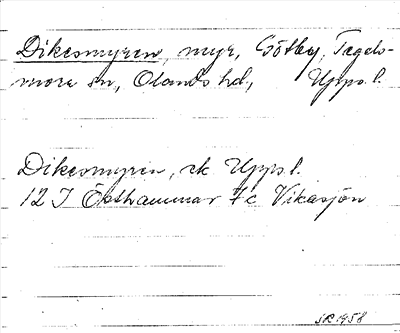 Dikesmyren, myr, Götby, Tegels-
mora sn, Olands hd, Upps.l.
Dikesmyren, ek Upps l.
12 I Östhammar 7c Vikasjön
SR 1958